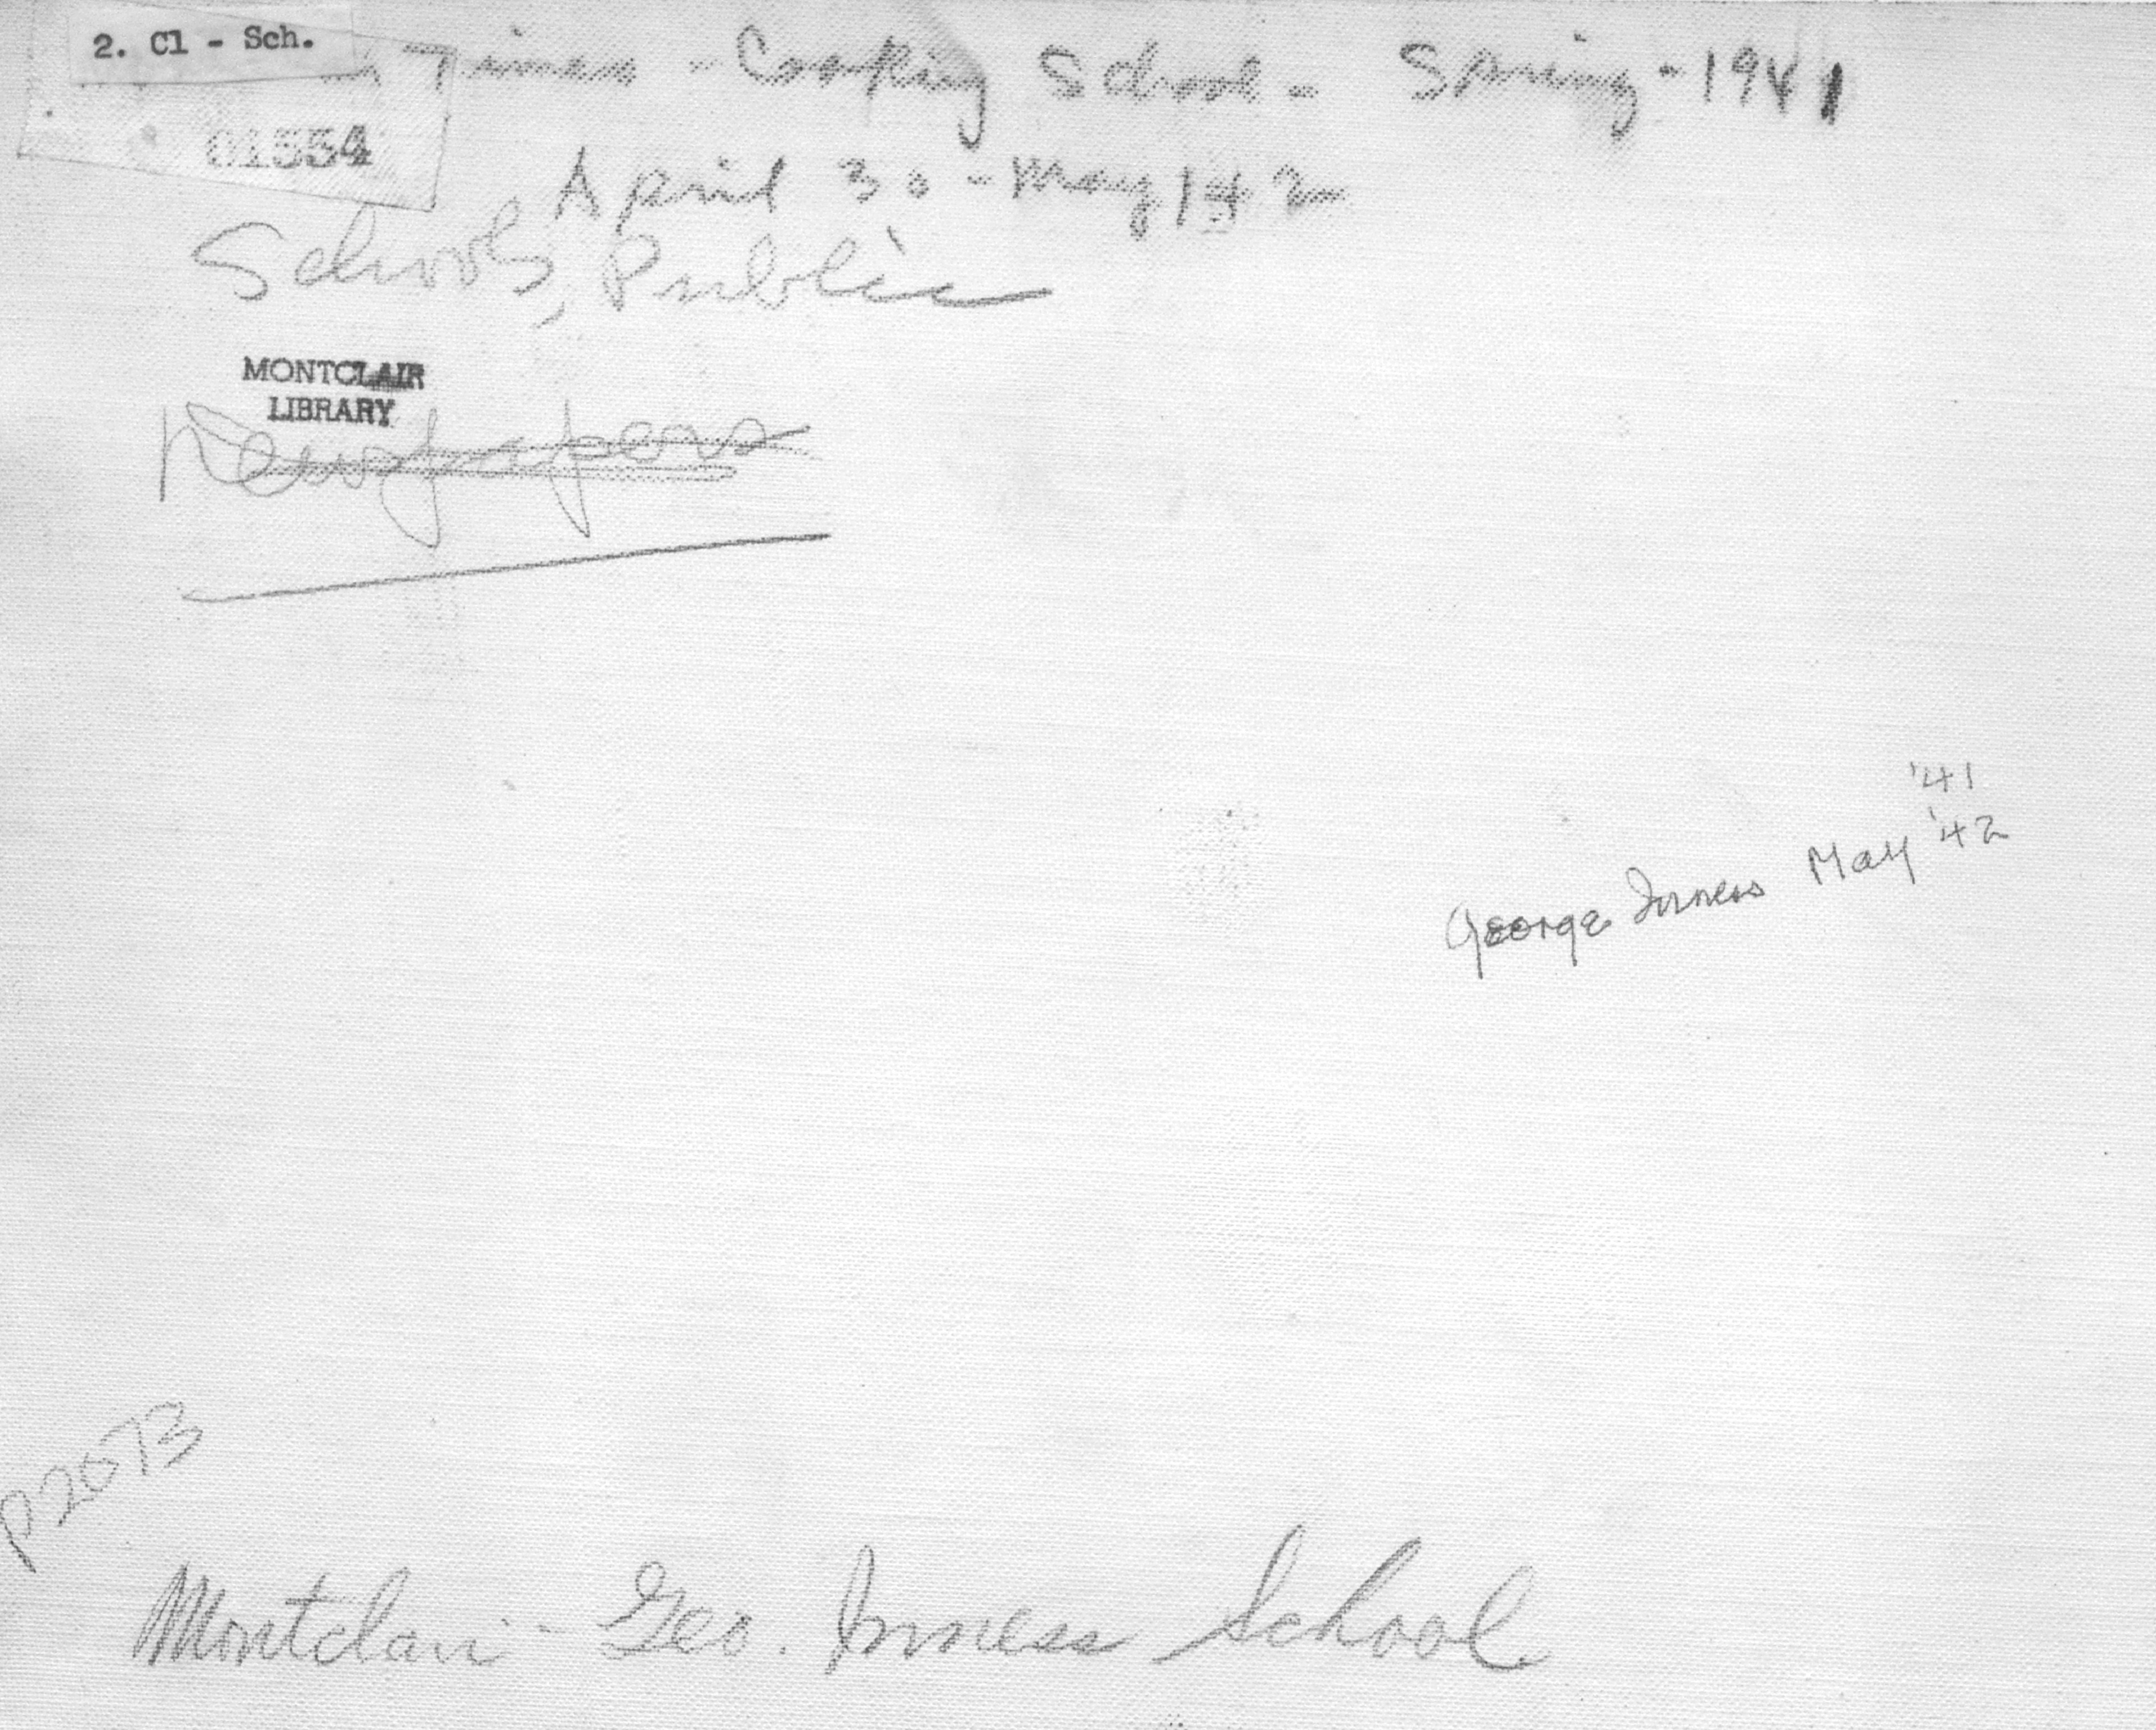 2. Cl - Sch.
Times - Cooking School - Spring - 1941
01554
April 30 - May 1 & 2
Schools, Public
MONTCLAIR
LIBRARY
Newspapers
'41
George Inness May '42
P2073
Montclair - Geo. Inness School